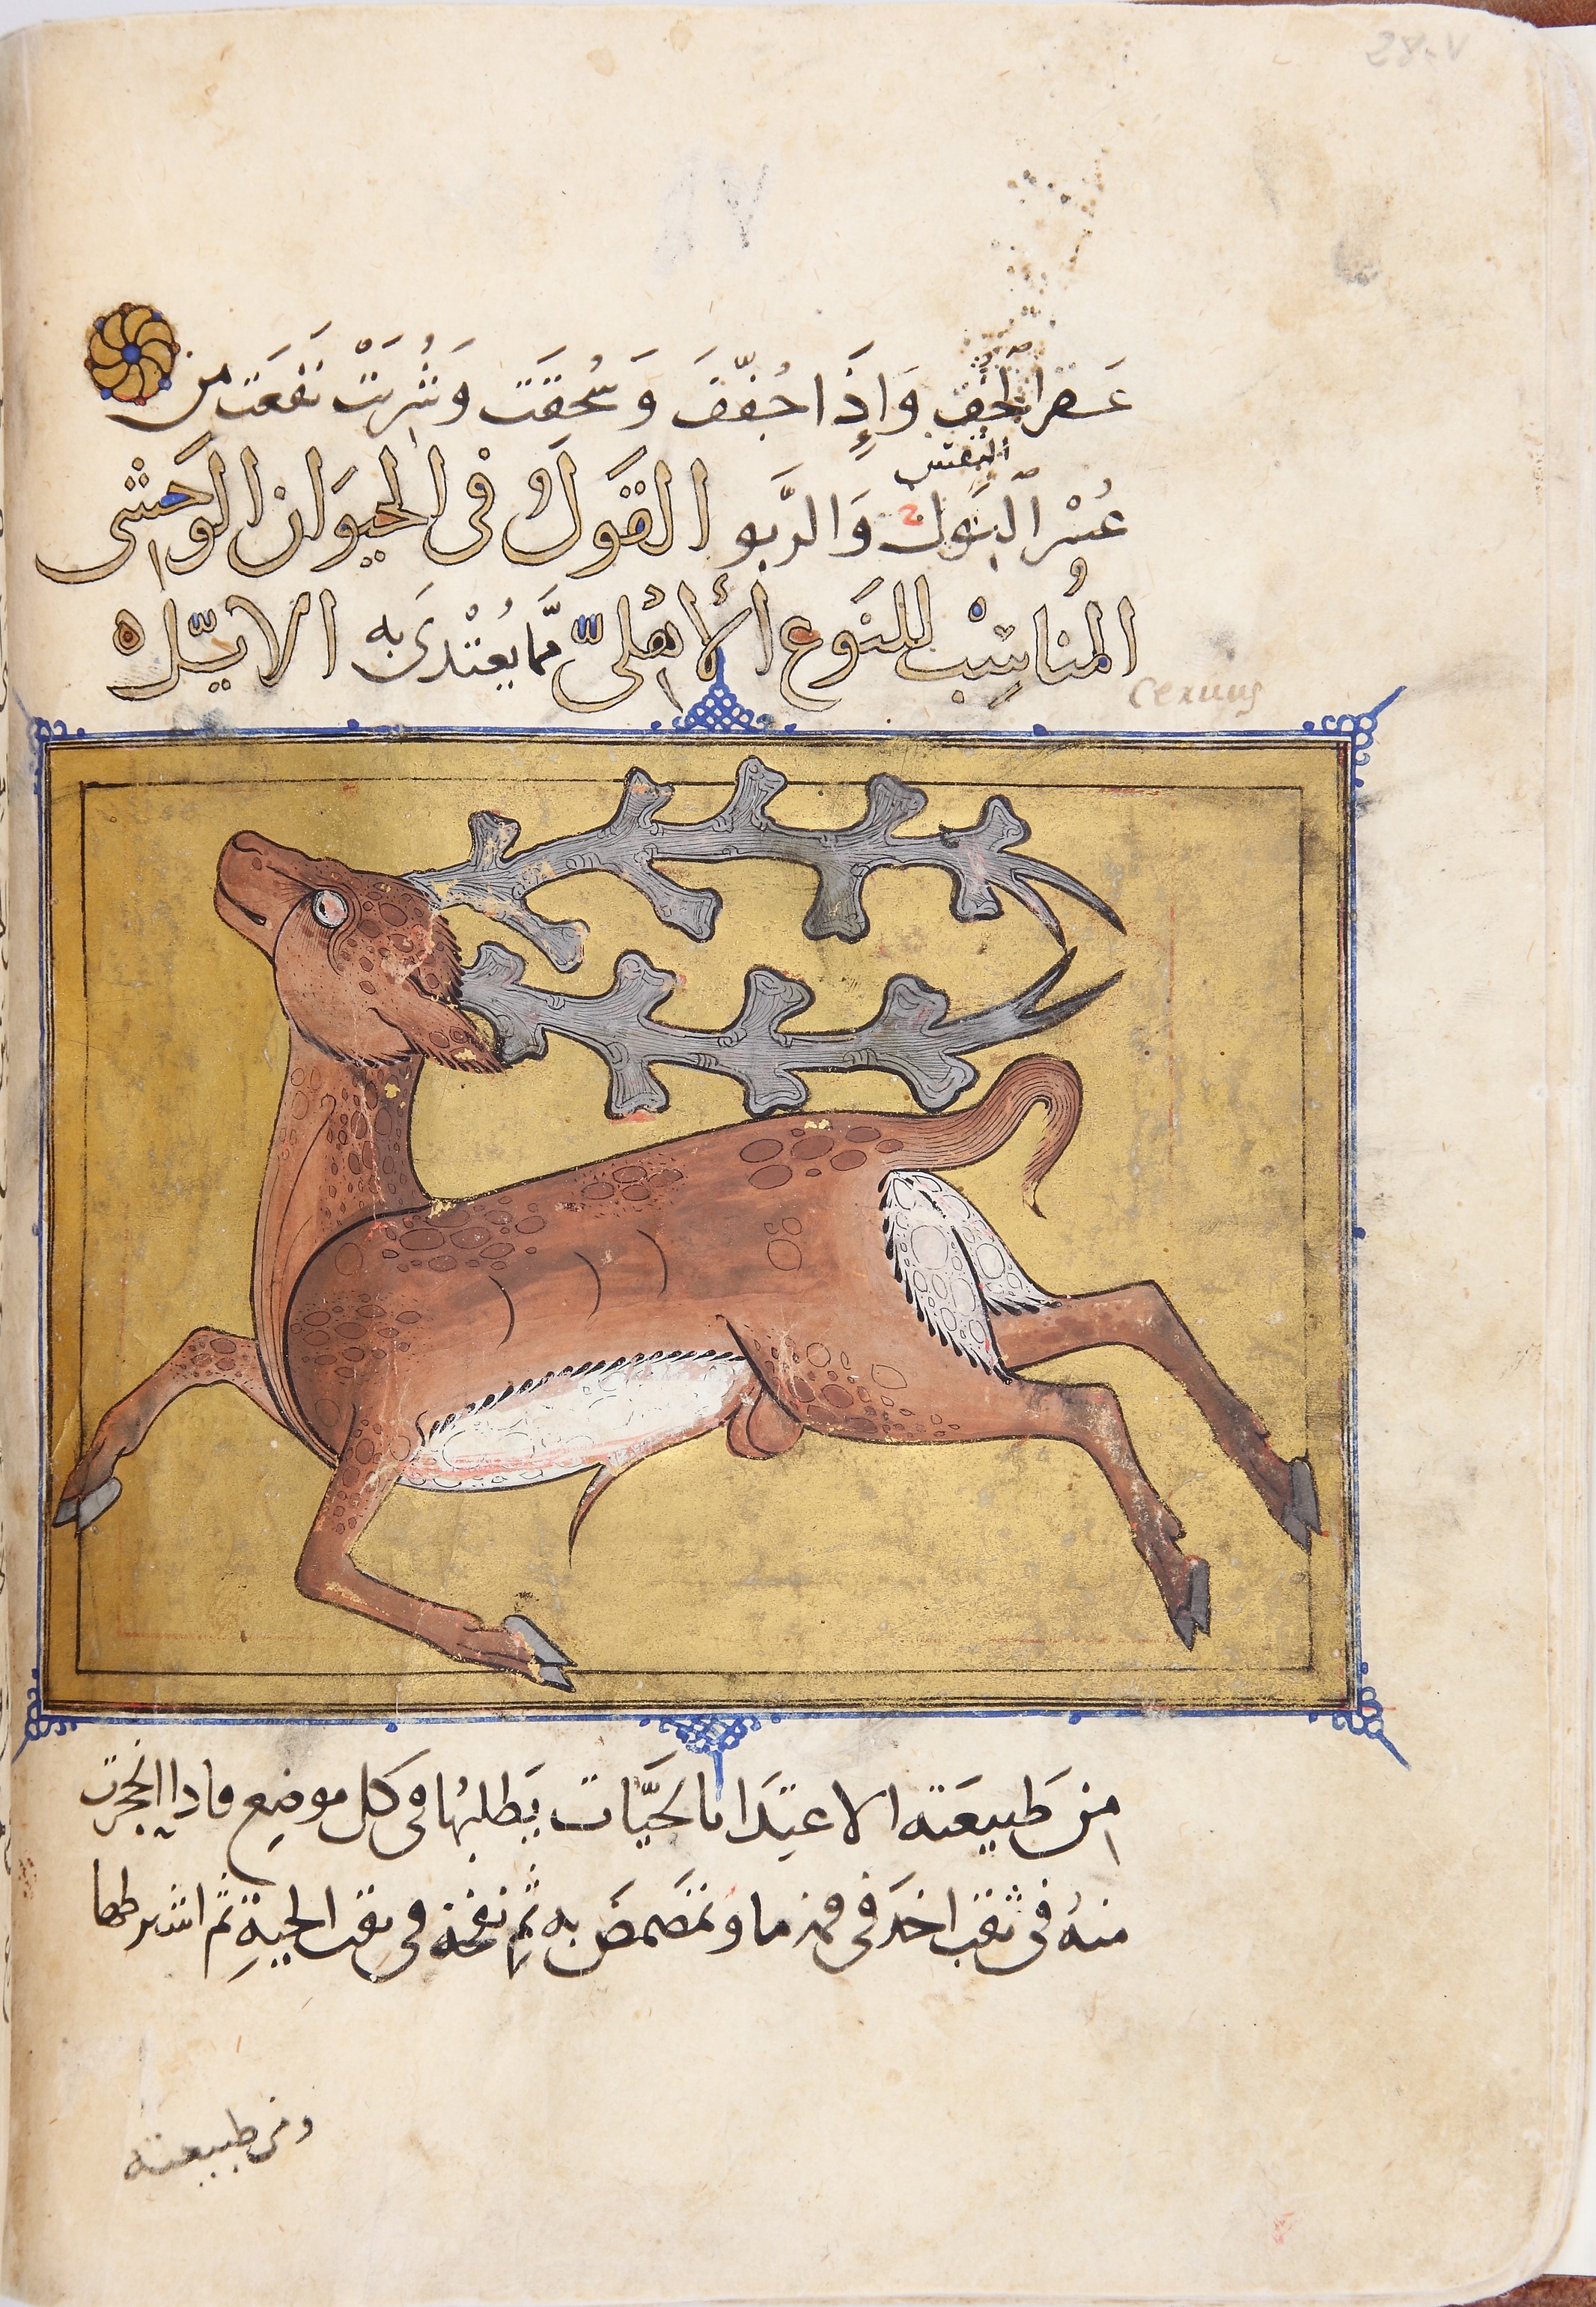 عَصَر الجفِّ وَإِذَا جُفّفَ وَسُحقَت وَشُرِبَتْ نَفَعَت من
النفس
عُسْر البَول وَالرَّبو القَولُ فى الحيوَان الوَحشى
المُناسِبْ للنَوع الأهْلىّ ممَّا يُغتْدىَ به الايّل
cervus
من طَبيعَته الاغتِدَا بالحَيَّات يَطلبُها فى كل موضِع فاذا انحجرت
منهُ فى ثقب اخَد فى فمه ما وتمَضمضَ به ثم نفخه فى ثقب الحيةِ ثم
ومن طبيعته